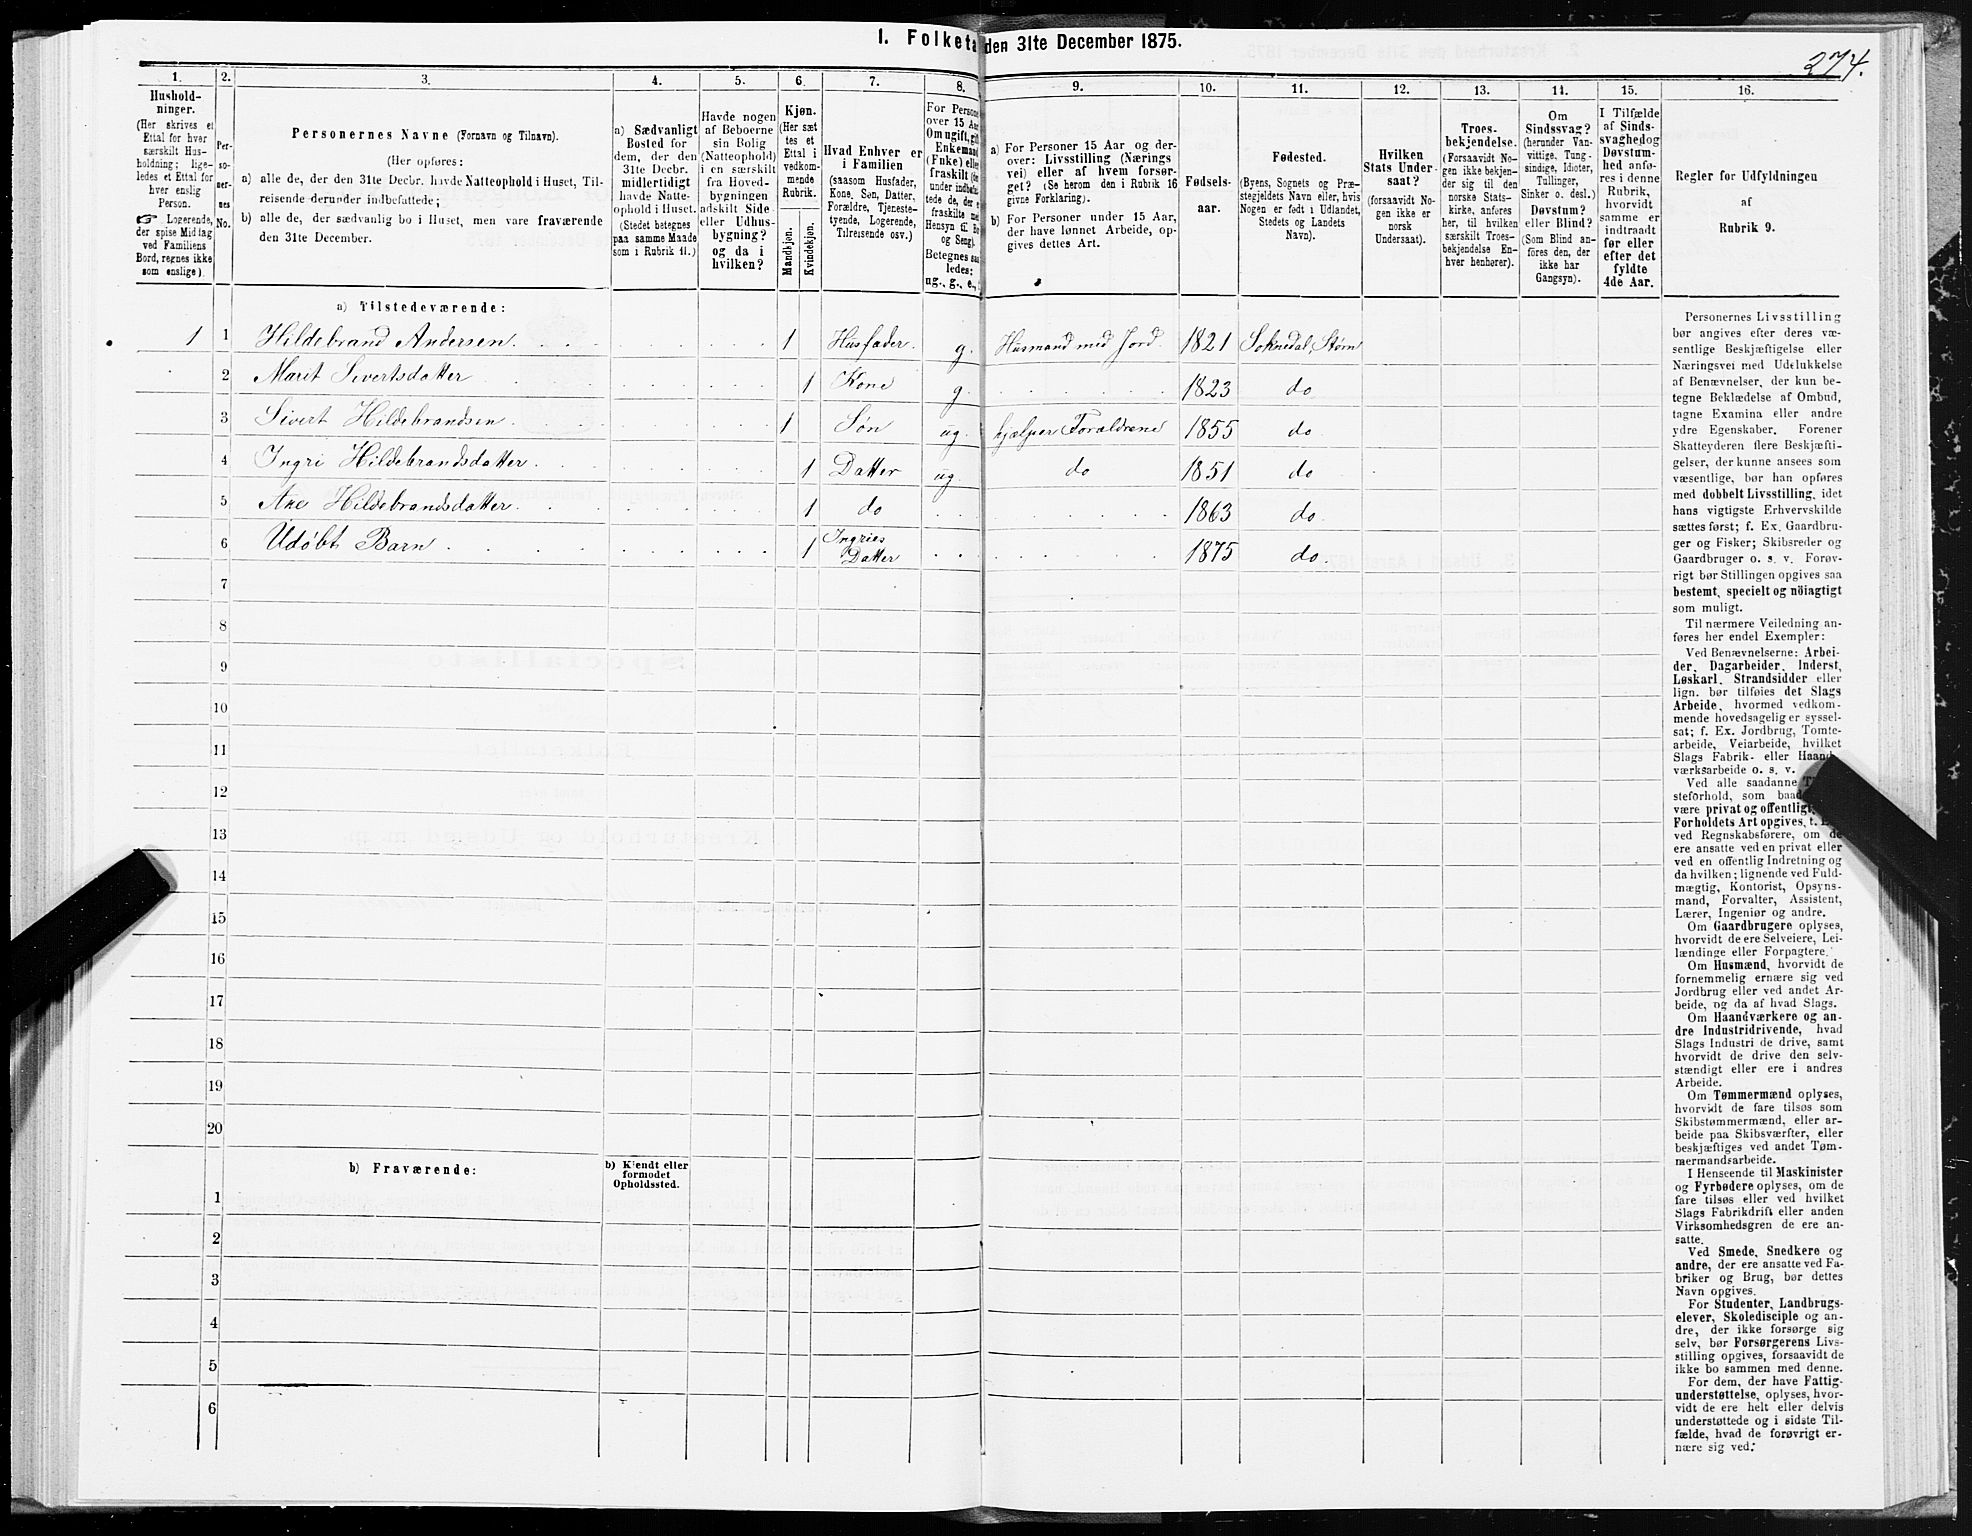 1. Folketa den 31te December 1875.
274.
1.
2.
3.
4.
5.
6.
7.
8.
9.
10.
11.
12.
13.
14.
15.
16.
Hushold-
ninger.
(Her skrives et
Ettal for hver
særskilt Hus-
holdning; lige-
ledes et Ettal for
hver enslig
Person.
☞ Logerende,
der spise Middag
ved Familiens
Bord, regnes ikke
som enslige).
Per-
so-
ner-
nes
No.
Personernes Navne (Fornavn og Tilnavn).
(Her opføres:
a) alle de, der den 31te Decbr. havde Natteophold i Huset, Til-
reisende derunder indbefattede;
b) alle de, der sædvanlig bo i Huset, men vare fraværende
den 31te December.
a) Sædvanligt
Bosted for
dem, der den
31te Decbr.
midlertidigt
havde Natte-
ophold i Huset.
(Stedet betegnes
paa samme Maade
som i Rubrik 11.)
Havde nogen
af Beboerne
sin Bolig
(Natteophold)
i en særskilt
fra Hoved-
bygningen
adskilt Side-
eller Udhus-
bygning?
og da i
hvilken?
Kjøn.
(Her sæt-
tes et
Ettal i
vedkom-
mende
Rubrik.
Mandkjøn.
Kvindekjøn.
Hvad Enhver er
i Familien
(saasom Husfader,
Kone, Søn, Datter,
Forældre, Tjeneste-
tyende, Logerende,
Tilreisende osv.)
For Persone
over 15 Aa
Om ugift, gift
Enkemand
(Enke) eller
fraskilt (de
under indbefat-
tede de, der e
fraskilte med
Hensyn til Bo
og Seng).
Betegnes saa
ledes:
ug., g., e.,
a) For Personer 15 Aar og der-
over: Livsstilling (Nærings
vei) eller af hvem forsør-
get? (Se herom den i Rubrik 16
givne Forklaring).
b) For Personer under 15 Aar,
der have lønnet Arbeide, op-
gives dettes Art.
Fødsels-
aar.
Fødested.
(Byens, Sognets og Præ-
stegjeldets Navn eller, hvis
Nogen er født i Udlandet,
Stedets og Landets
Navn).
Hvilken
Stats Under-
saat?
(forsaavidt No-
gen ikke er
norsk
Undersaat).
Troes-
bekjendelse.
(Forsaavidt No-
gen ikke bekjen-
der sig til den
norske Stats-
kirke, anføres
her, til hvilken
særskilt Troes-
bekjendelse En-
hver henhører).
Om
Sindssvag?
(herunder Van-
vittige, Tung-
sindige, Idioter,
Tullinger,
Sinker o. desl.)
Døvstum?
eller Blind?
(Som Blind an-
føres den, der
ikke har
Gangsyn).
I Tilfælde
af Sinds-
svaghed og
Døvstum-
hed anfø-
res i denne
Rubrik,
hvorvidt
samme er
indtraadt
før eller
efter det
fyldte
4de Aar.
Regler for Udfyldningen
af
Rubrik 9.
a) Tilstedeværende:
1 1 Hildebrand Andersen. 1 Husfader. g. Husmand med Jord. 1821 Soknedal, Støren
2 Marit Sivertsdatter 1 Kone g. 1823 do
3 Sivert Hildebrandsen 1 Søn ug. hjælper Forældrene 1855 do
4 Ingri Hildebrandsdatter. 1 Datter ug. do 1851 do
5 Ane Hildebrandsdatter. 1 do 1863 do
6 Udøbt Barn 1 Ingries
Datter 1875 do.
7
8
9
10
11
12
13
14
15
16
17
18
19
20
b) Fraværende:
b) Kjendt eller
formodet
Opholdssted.
1
2
3
4
5
6
Personernes Livsstilling
bør angives efter deres væ-
sentlige Beskjæftigelse eller
Næringsvei med Udelukkelse
af Benævnelser, der kun be-
tegne Beklædelse af Ombud,
tagne Examina eller andre
ydre Egenskaber. Forener
Skatteyderen flere Beskjæfti-
gelser, der kunne ansees som
væsentlige, bør han opføres
med dobbelt Livsstilling, idet
hans vigtigste Erhvervskilde
sættes først; f. Ex. Gaardbru-
ger og Fisker; Skibsreder og
Gaardbruger o. s. v. Forøv-
rigt bør Stillingen opgives saa
bestemt, specielt og nöiagtigt
som muligt.
Til nærmere Veiledning an-
føres her endel Exempler:
Ved Benævnelserne: Arbei-
der, Dagarbeider, Inderst,
Løskarl, Strandsidder eller
lign. bør tilføies det Slags
Arbeide, hvormed vedkom-
mende hovedsagelig er syssel-
sat; f. Ex. Jordbrug, Tomte-
arbeide, Veiarbeide, hvilket
Slags Fabrik- eller Haand-
værksarbeide o. s. v.
Ved alle saadanne
steforhold, som
være privat og offentligt,
Forholdets Art opgives, t.
ved Regnskabsførere, om de
ere ansatte ved en privat eller
ved en offentlig Indretning og
da hvilken; lignende ved Fuld-
mægtig, Kontorist, Opsyns-
mand, Forvalter, Assistent,
Lærer, Ingeniør og andre.
Om Gaardbrugere oplyses,
hvorvidt de ere Selveiere, Lei-
lændinge eller Forpagtere.
Om Husmænd, hvorvidt de
fornemmelig ernære sig ved
Jordbrug eller ved andet Ar-
beide, og da af hvad Slags.
Om Haandværkere og an-
dre Industridrivende, hvad
Slags Industri de drive, samt
hvorvidt de drive den selv-
stændigt eller ere i andres
Arbeide.
Om Tømmermænd oplyses,
hvorvidt de fare tilsøs som
Skibstømmermænd, eller ar-
beide paa Skibsværfter, eller
beskjæftiges ved andet Tøm-
mermandsarbeide.
I Henseende til Maskinister
og Fyrbødere oplyses, om de
fare tilsøs eller ved hvilket
Slags Fabrikdrift eller anden
Virksomhedsgren de ere an-
satte.
Ved Smede, Snedkere og
andre, der ere ansatte ved Fa-
briker og Brug, bør dettes
Navn opgives.
For Studenter, Landbrugs-
elever, Skoledisciple og an-
dre, der ikke forsørge sig
selv, bør Forsørgerens Livs-
stilling opgives, forsaavidt de
ikke bo sammen med denne.
For dem, der have Fattig-
understøttelse, oplyses, hvor-
vidt de ere helt eller delvis
understøttede og i sidste Til-
fælde, hvad de forøvrigt er-
nære sig ved.